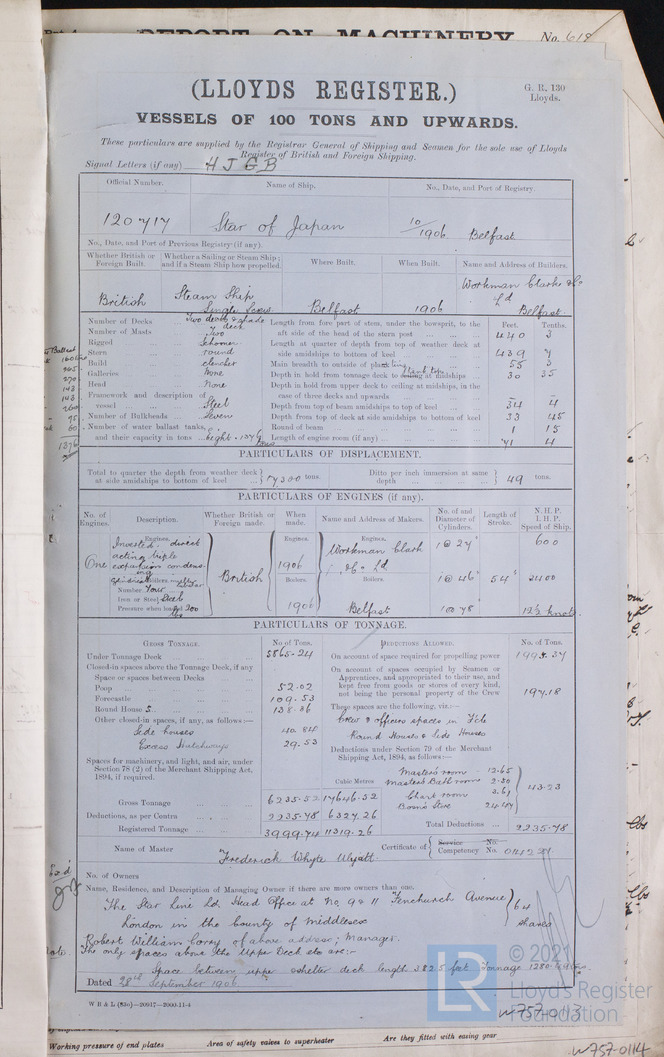 REPORT ON MACHINERY
No. 618
(LLOYDS REGISTER.)
G. R. 130
Lloyds.
VESSELS OF 100 TONS AND UPWARDS.
These particulars are supplied by the Registrar General of Shipping and Seamen for the sole use of Lloyds
Register of British and Foreign Shipping.
Signal Letters (if any) H J G B
Official Number. Name of Ship. No., Date, and Port of Registry.
120717 Star of Japan 10/1906 Belfast
No., Date, and Port of Previous Registry (if any).
Whether British or Foreign Built. Whether a Sailing or Steam Ship; and if a Steam Ship how propelled. Where Built. When Built. Name and Address of Builders.
British Steam Ship Single Screw Belfast 1906 Workman Clark & Co Ld Belfast
Number of Decks Two decks & shade deck
Number of Masts Two
Rigged Schooner
Stern round
Build clencher
Galleries None
Head None
Framework and description of vessel Steel
Number of Bulkheads Seven
Number of water ballast tanks, and their capacity in tons Eight . 1376 tons
Feet. Tenths.
Length from fore part of stem, under the bowsprit, to the aft side of the head of the stern post 440 3
Length at quarter of depth from top of weather deck at side amidships to bottom of keel 439 7
Main breadth to outside of plating 55 3
Depth in hold from tonnage deck to tank top at midships 30 35
Depth in hold from upper deck to ceiling at midships, in the case of three decks and upwards - -
Depth from top of beam amidships to top of keel 34 4
Depth from top of deck at side amidships to bottom of keel 33 45
Round of beam 1 15
Length of engine room (if any) 71 4
PARTICULARS OF DISPLACEMENT.
Total to quarter the depth from weather deck at side amidships to bottom of keel 17300 tons.
Ditto per inch immersion at same depth 49 tons.
PARTICULARS OF ENGINES (if any).
No. of Engines. Description. Whether British or Foreign made. When made. Name and Address of Makers. No. of and Diameter of Cylinders. Length of Stroke. N.H.P. I.H.P. Speed of Ship.
One
Engines. Inverted direct acting triple expansion condensing
Boilers.
Number Four
Iron or Steel Steel
Pressure when loaded 200
British
Engines. 1906
Boilers. 1906
Engines. Workman Clark & Co Ld
Boilers. Belfast
1 @ 27"
1 @ 46"
1 @ 78"
54"
600
2400
12½ knots
PARTICULARS OF TONNAGE.
GROSS TONNAGE. No. of Tons.
Under Tonnage Deck 5865.24
Closed-in spaces above the Tonnage Deck, if any
Space or spaces between Decks
Poop 52.02
Forecastle 109.53
Round House s 138.36
Other closed-in spaces, if any, as follows:—
Side houses 40.84
Excess Hatchways 29.53
Spaces for machinery, and light, and air, under Section 78 (2) of the Merchant Shipping Act, 1894, if required.
Cubic Metres
Gross Tonnage 6235.52 17646.52
Deductions, as per Contra 2235.78 6327.26
Registered Tonnage 3999.74 11319.26
DEDUCTIONS ALLOWED. No. of Tons.
On account of space required for propelling power 1995.37
On account of spaces occupied by Seamen or Apprentices, and appropriated to their use, and kept free from goods or stores of every kind, not being the personal property of the Crew 197.18
These spaces are the following, viz.:—
Crew & officers spaces in F'cle
Round Houses & Side Houses
Deductions under Section 79 of the Merchant Shipping Act, 1894, as follows:—
Master's room 12.65
Master's Bath room 2.50
Chart room 3.61
Bosn's Store 24.47
43.23
Total Deductions 2235.78
Name of Master Frederick Whyte Wyatt
Certificate of Service No.
Competency No.
No. of Owners
Name, Residence, and Description of Managing Owner if there are more owners than one.
The Star Line Ld. Head Office at No. 9 & 11 Fenchurch Avenue
London in the County of Middlesex
64 shares
Robert William Corry of above address; Manager.
The only spaces above the Upper Deck etc are:-
Space between upper & shelter deck length 382.5 feet Tonnage
Dated 28th September 1906
W B & L (83o)—20917—2000-11-4
© 2021
LR
Lloyd's Register
Foundation
W757-0113
Working pressure of end plates
Area of safety valves to superheater
Are they fitted with easing gear
W757-0114